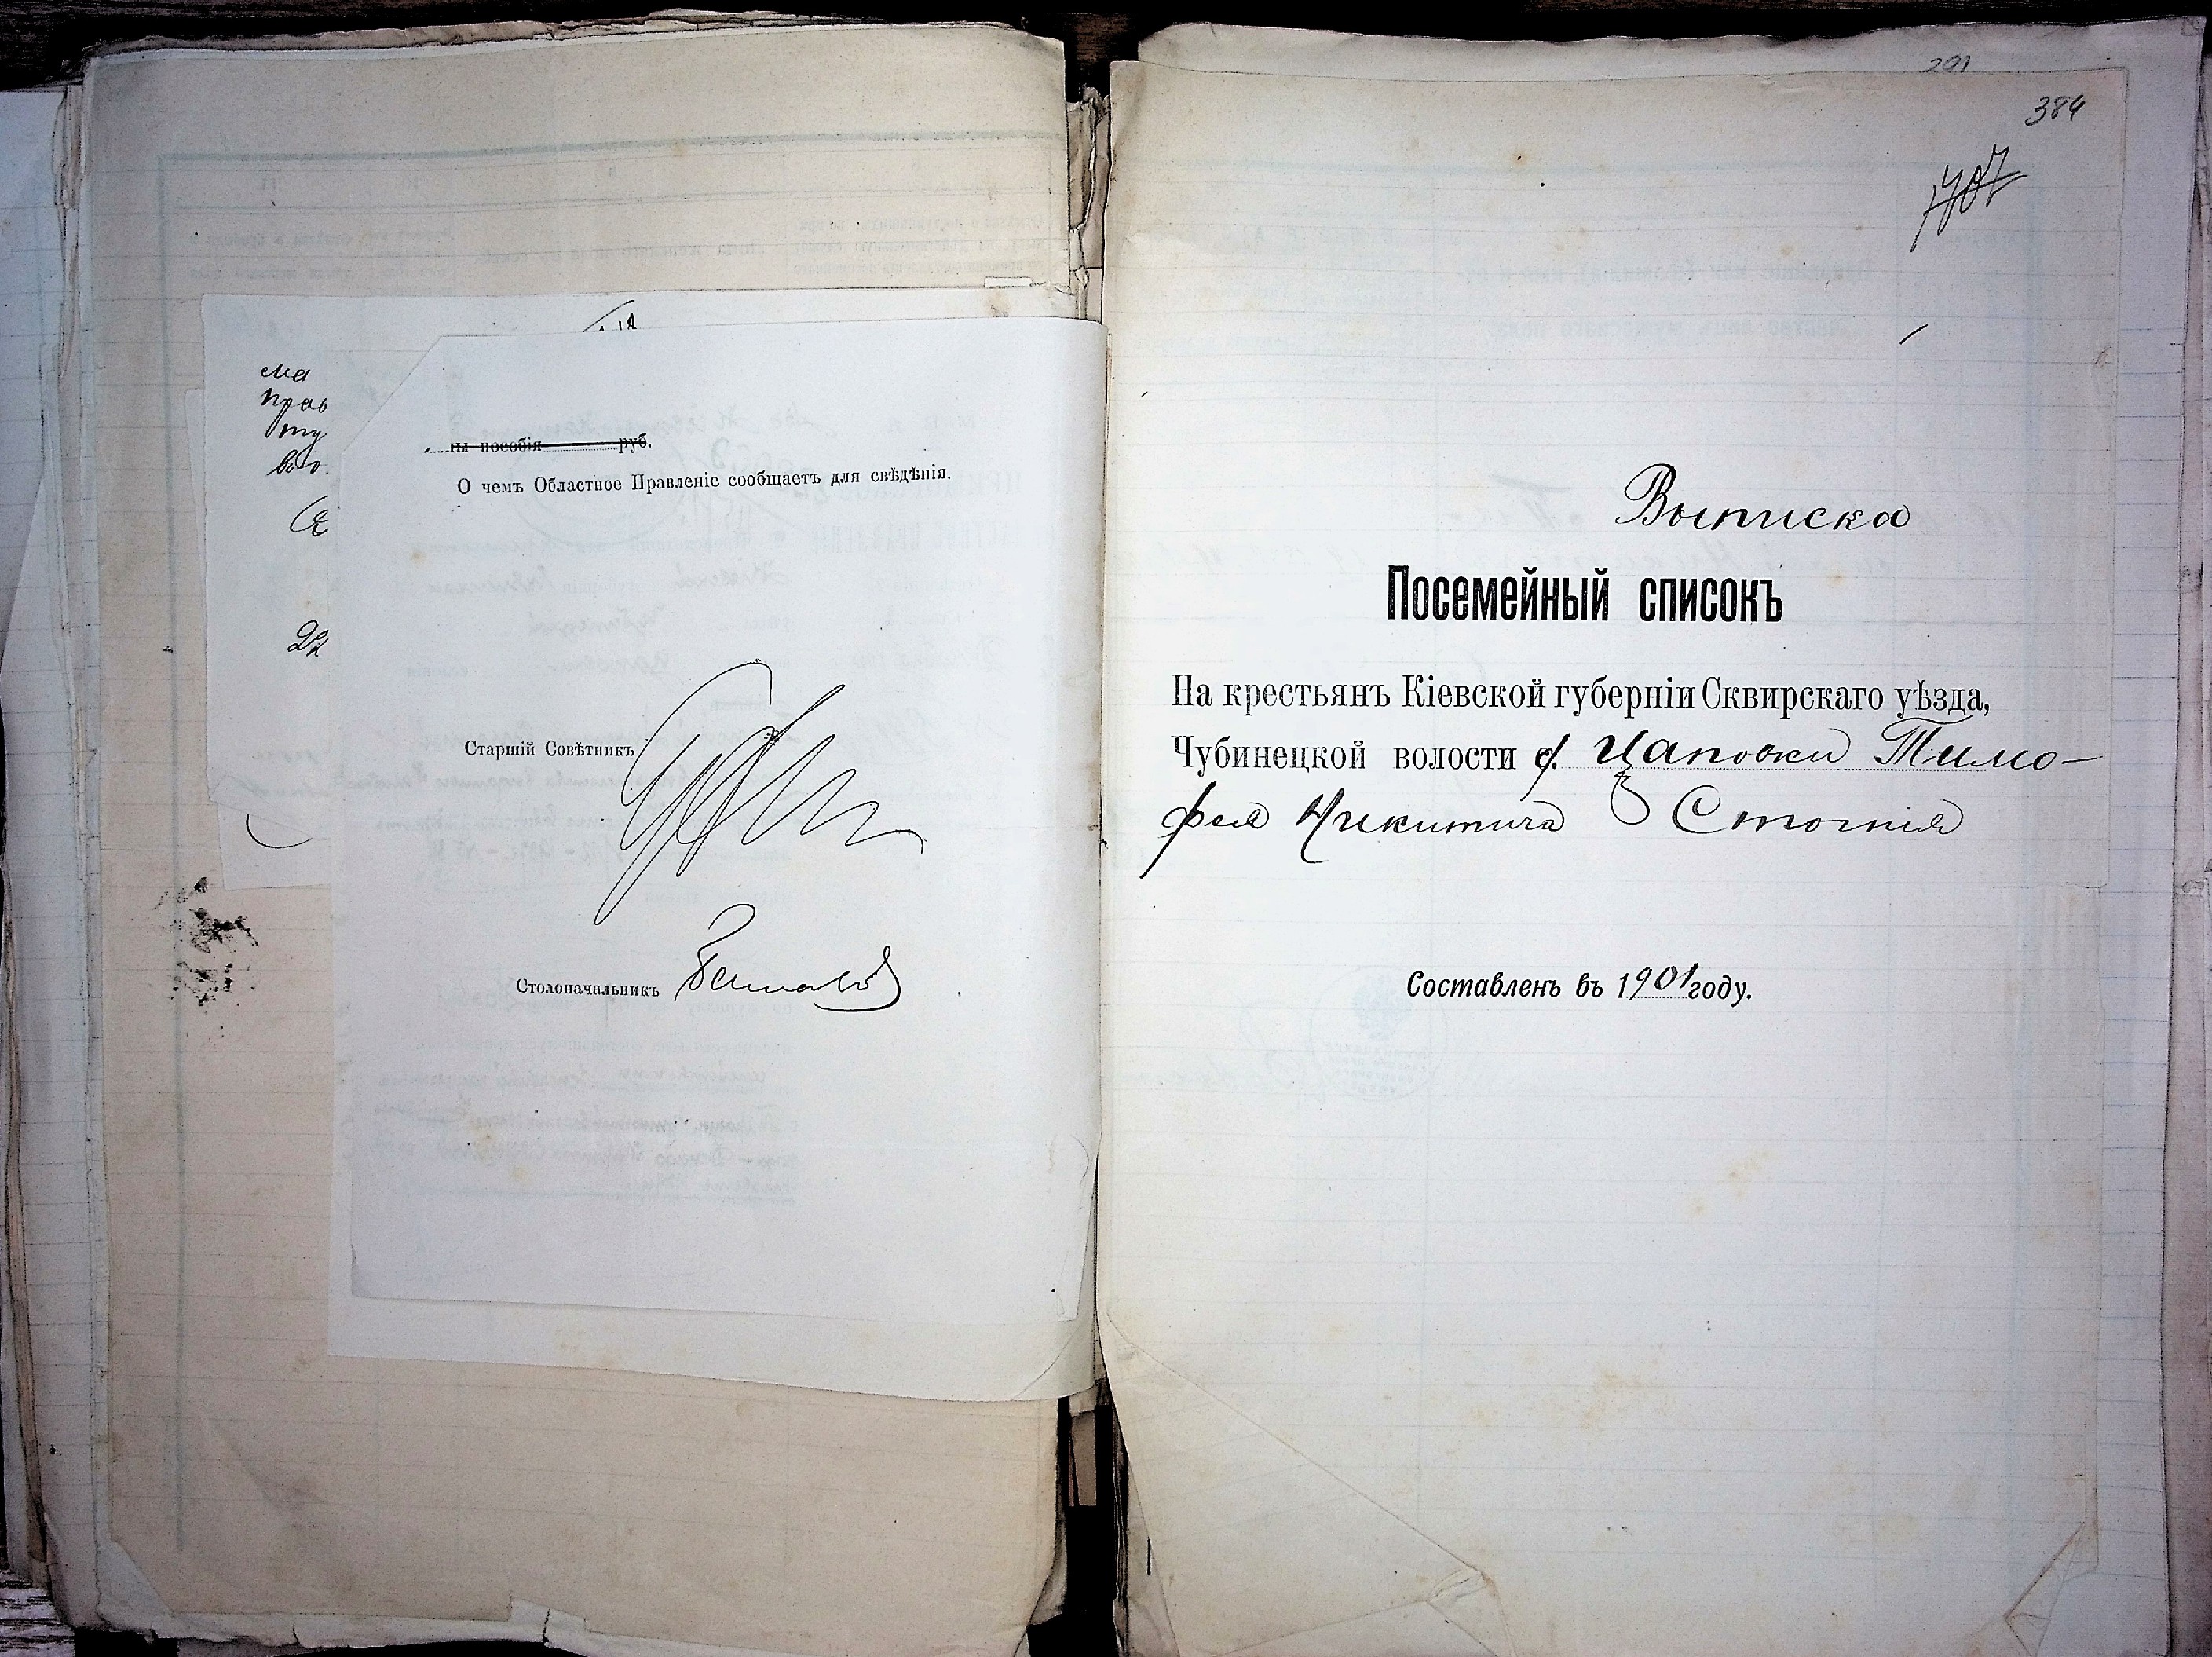 ма
прав
ту
во.
ны пособія руб.
О чемъ Областное Правленіе сообщаетъ для свѣдѣнія.
Старшій Совѣтникъ
Столоначальникъ
291
384
707
Выписка
Посемейный списокъ
На крестьянъ Кіевской губерніи Сквирскаго уѣзда,
Чубинецкой волости с. Цаповки Тимо-
фея Никитича Стогнія
Составленъ въ 1901 году.